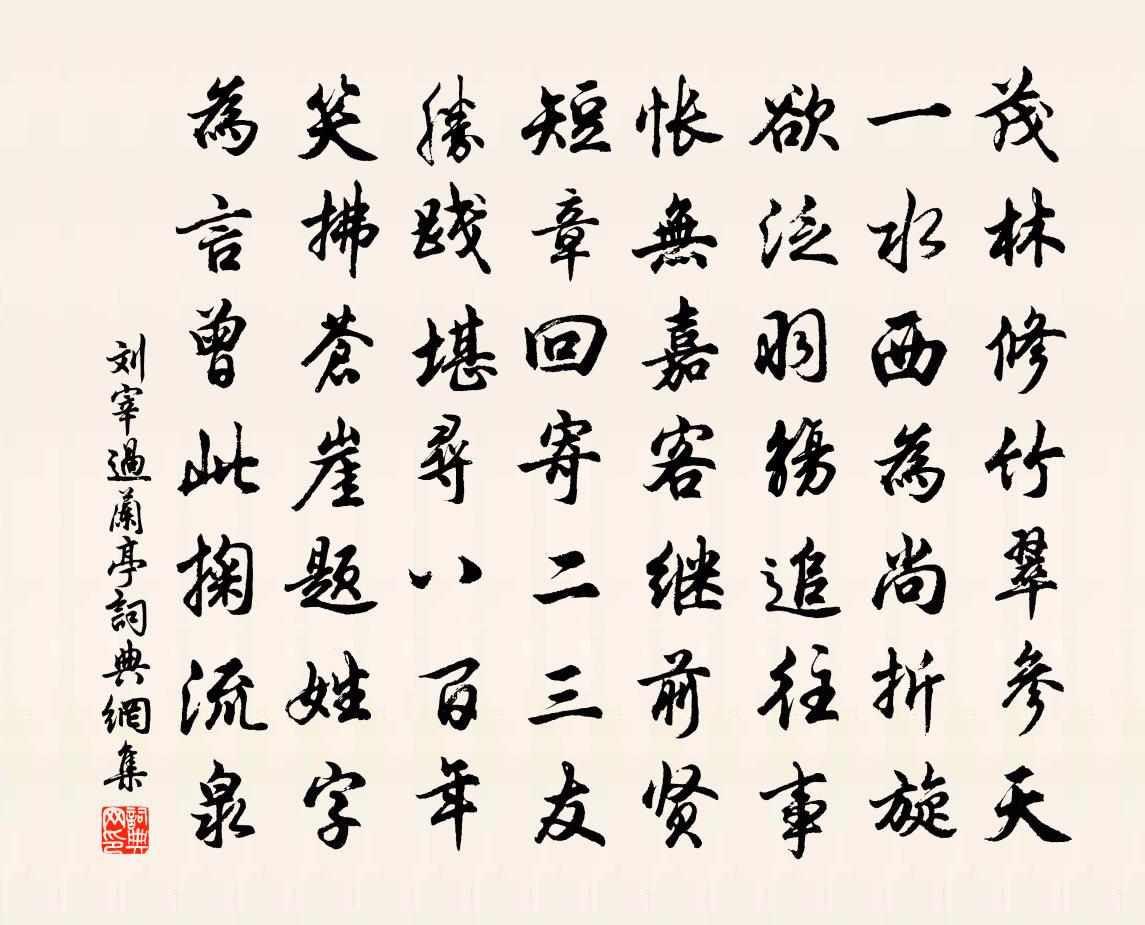 茂林修竹翠參天
一水西為尚折旋
欲泛羽觴追往事
悵無嘉客继前贤
短章回寄二三友
勝践堪尋八百年
笑拂蒼崖题姓字
為言曾此掬流泉
刘宰過蘭亭詞典網集
詞典網印